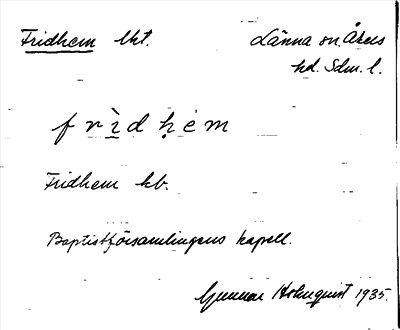 Fridhem lht. Länna sn. Åkers
hd. Sdm. l.
frìdḥém
Fridhem kb.
Baptistförsamlingens kapell.
Gunnar Holmquist 1935.